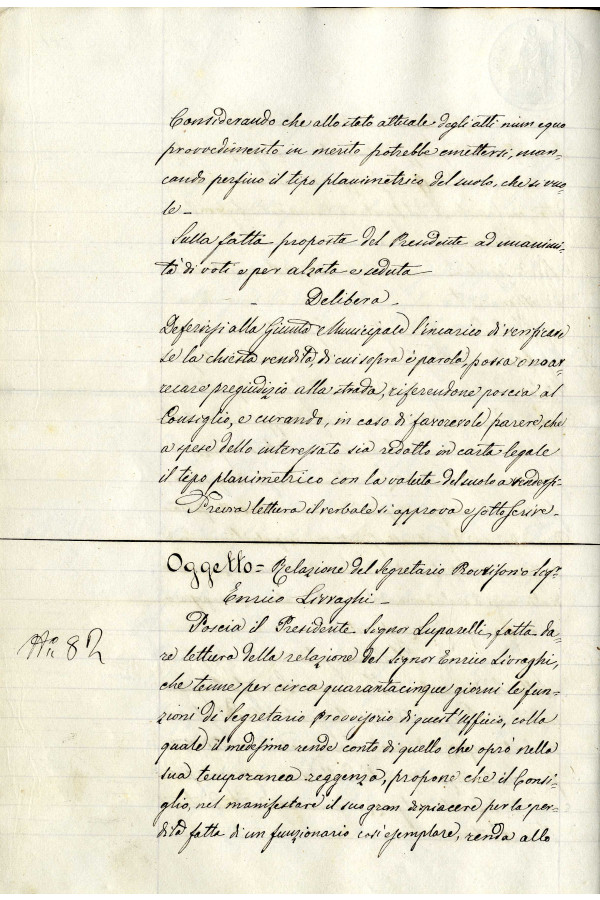 Considerando che allo stato attuale degli atti niun equo
provvedimento in merito potrebbe emettersi, man-
cando perfino il tipo planimetrico del suolo, che si vuo-
le -
Sulla fatta proposta del Presidente ad unanimi-
tà di voti e per alzata e seduta
- Delibera -
Deferirsi alla Giunta Municipale l'incarico di verificare
se la chiesta vendita, di cui sopra è parola, possa o no ar-
recare pregiudizio alla strada, riferendone poscia al
Consiglio, e curando, in caso di favorevole parere, che
a spese dello interessato sia redatto in carta legale
il tipo planimetrico con la valuta del suolo a vendersi -
Previa lettura il verbale si approva e sottoscrive -
Oggetto = Relazione del Segretario Provvisorio Sigr
Enrico Livraghi -
No 82
Poscia il Presidente Signor Luparelli, fatta da-
re lettura della relazione del Signor Enrico Livraghi,
che tenne per circa quarantacinque giorni le fun-
zioni di Segretario Provvisorio di quest'Ufficio, colla
quale il medesimo rende conto di quello che oprò nella
sua temporanea reggenza, propone che il Consi-
glio, nel manifestare il suo gran dispiacere per la per-
dita fatta di un funzionario così esemplare, renda allo